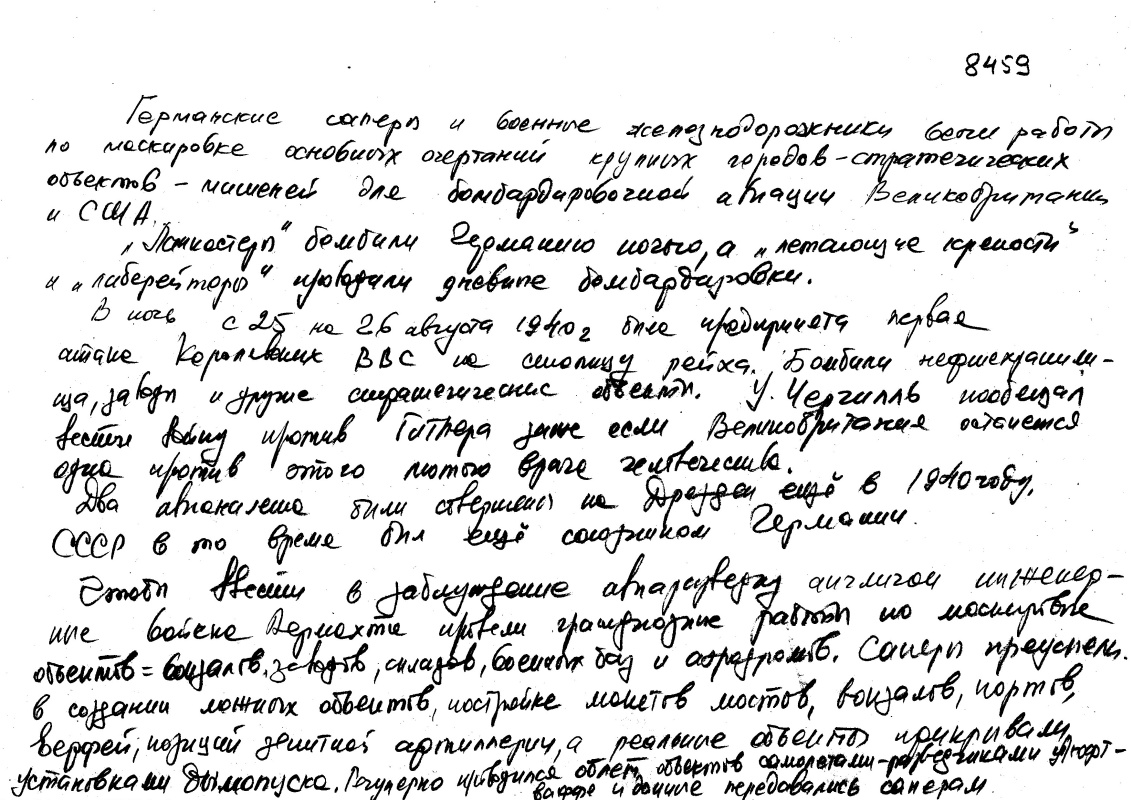 8459
Германские саперы и военные железнодорожники вели работы
по маскировке основных очертаний крупных городов - стратегических
объектов - мишеней для бомбардировочной авиации Великобритании
и США.
„Ланкастеры" бомбили Германию ночью, а „летающие крепости"
и „либерейторы" проводили дневные бомбардировки.
В ночь с 25 на 26 августа 1940 г была предпринята первая
атака Королевских ВВС на столицу рейха. Бомбили нефтехранили-
ща, заводы и другие стратегические объекты. У. Черчилль пообещал
вести войну против Гитлера даже если Великобритания останется
одна против этого лютого врага человечества.
Два авианалета были совершены на Дрезден ещё в 1940 году.
СССР в то время был ещё союзником Германии.
Чтобы ввести в заблуждение авиаразведку англичан инженер-
ные войска Вермахта провели грандиозные работы по маскировке
объектов = вокзалов, заводов, складов, военных баз и аэродромов. Саперы преуспели
в создании ложных объектов, постройке макетов мостов, вокзалов, портов,
верфей, позиций зенитной артиллерии, а реальные объекты прикривали
установками дымопуска. Регулярно проводился облет объектов самолетами-разведчиками Люфт-
ваффе и данные передавались саперам